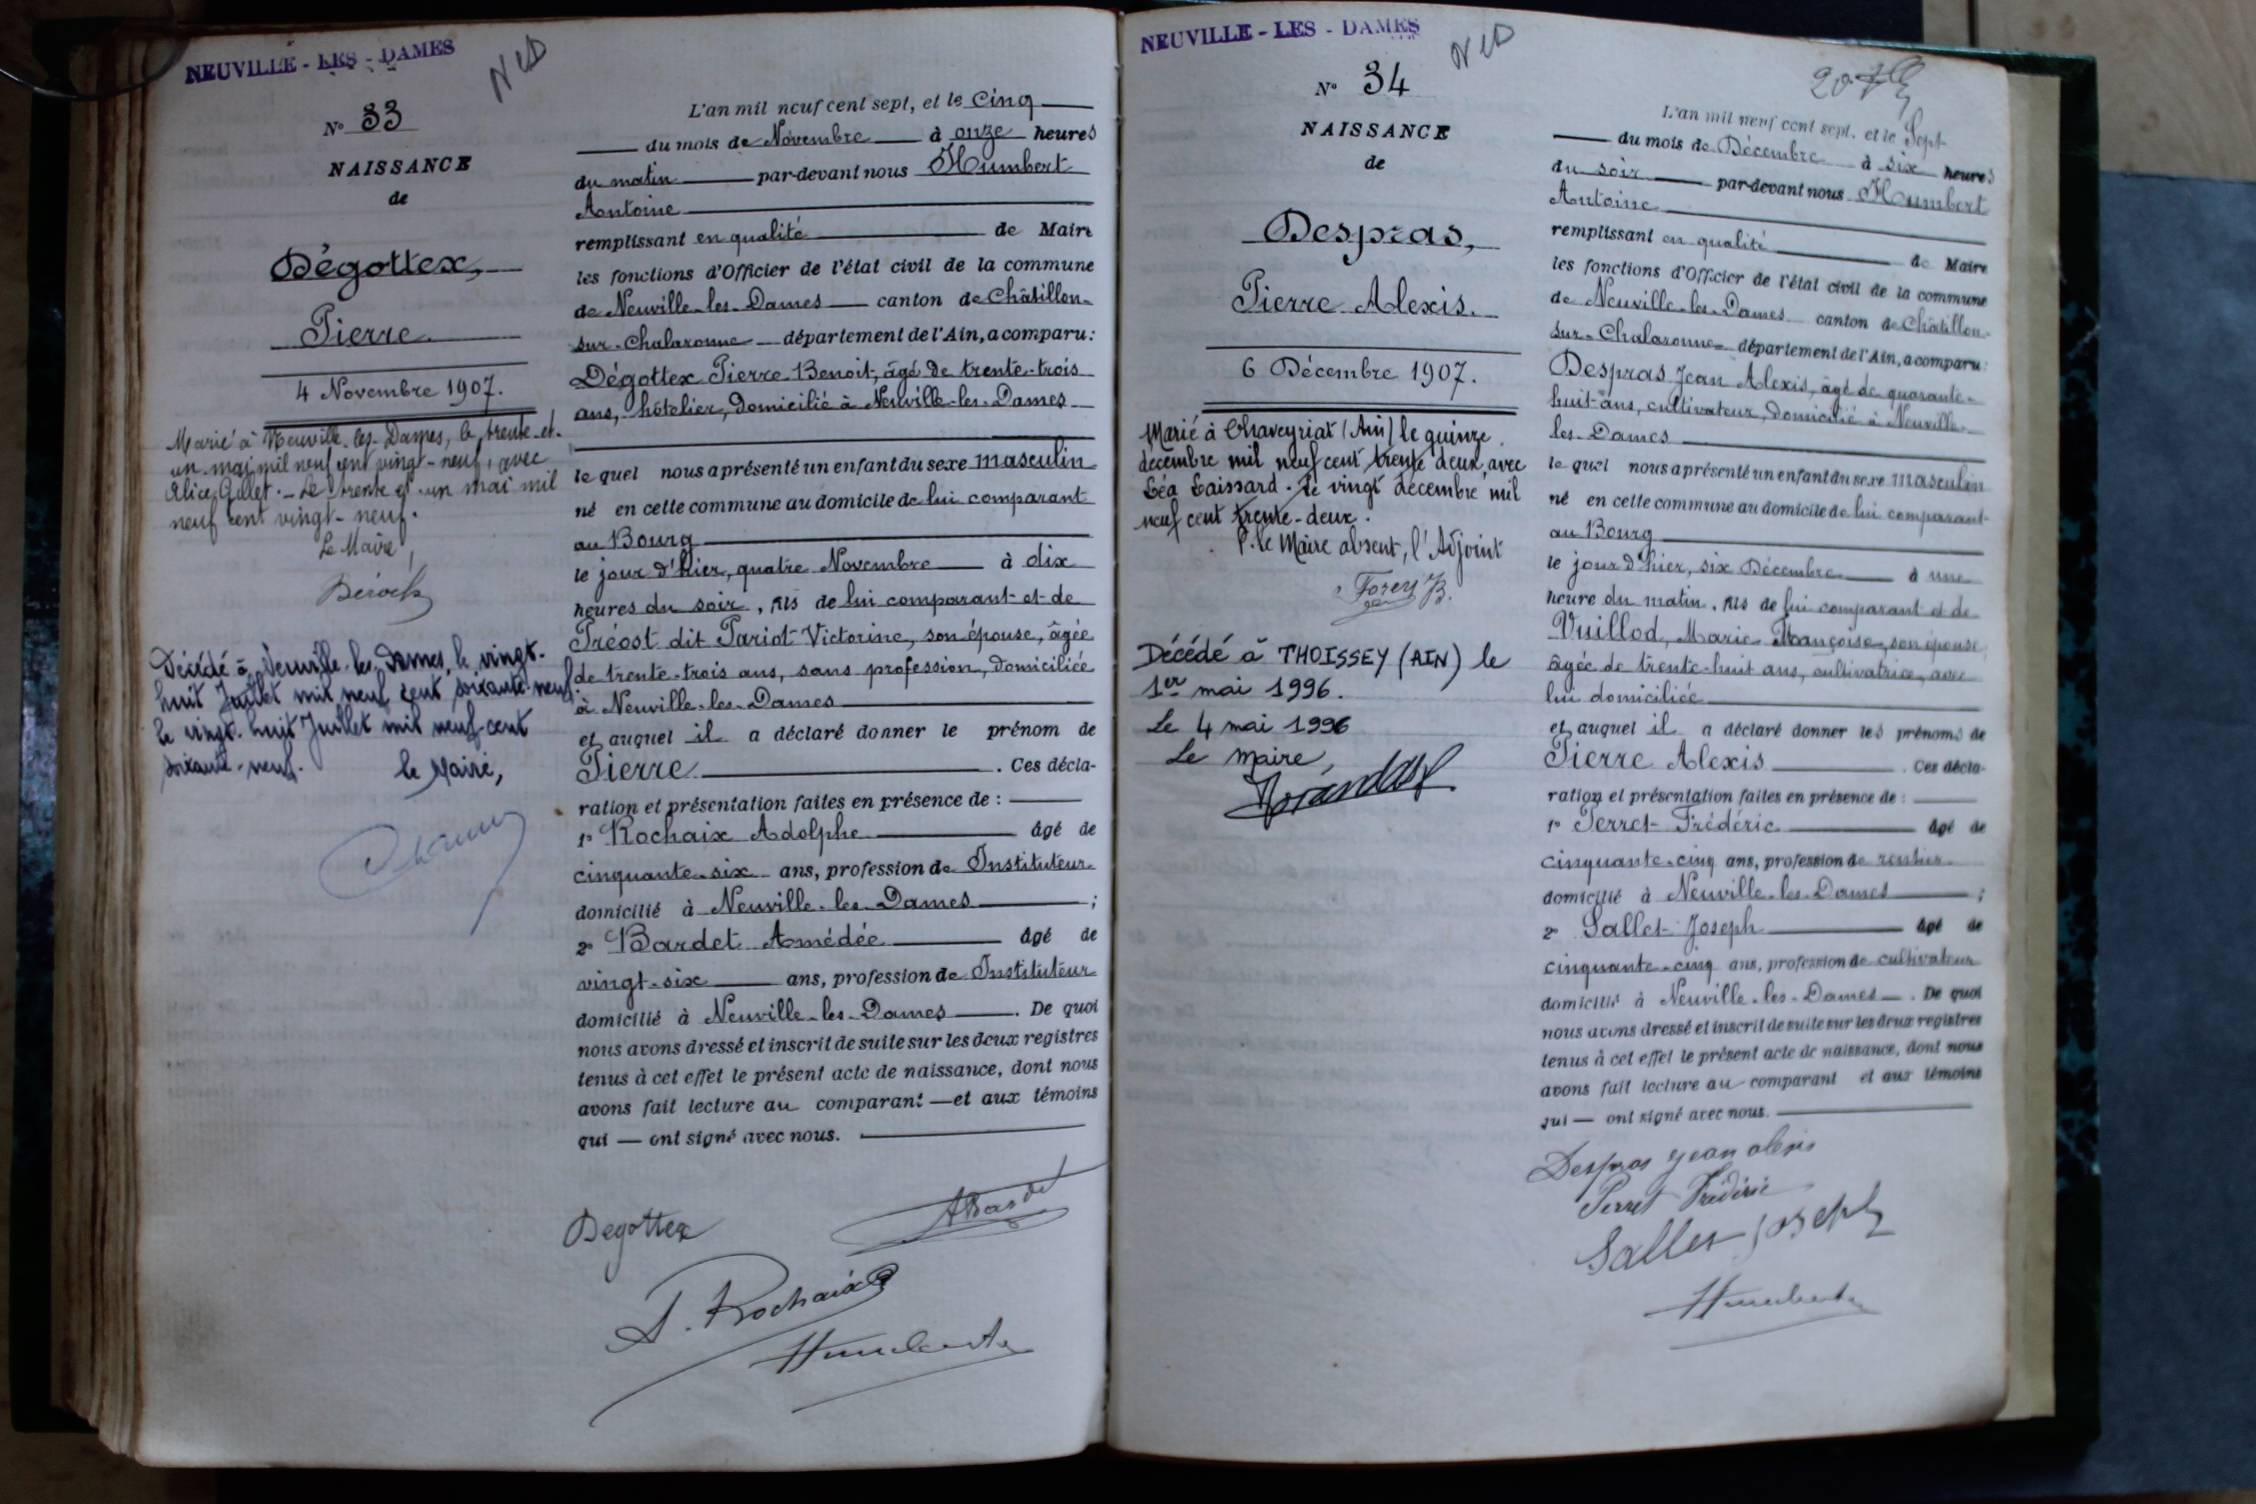 NEUVILLE - LES - DAMES
NLD
N° 33
NAISSANCE
de
Dégottex,
Pierre
4 Novembre 1907.
Marié à Neuville-les-Dames, le trente-et-
un mai mil neuf cent vingt-neuf, avec
Alice Gillet. - Le trente et un mai mil
neuf cent vingt-neuf.
Le Maire,
Décédé à Neuville-les-Dames, le vingt-
huit Juillet mil neuf cent soixante-neuf
le vingt-huit Juillet mil neuf-cent
soixante-neuf.
le Maire,
L'an mil neuf cent sept, et le Cinq
du mois de Novembre à onze heures
du matin par-devant nous Humbert
Antoine
remplissant en qualité de Maire
les fonctions d'Officier de l'état civil de la commune
de Neuville-les-Dames canton de Châtillon-
sur-Chalaronne département de l'Ain, a comparu:
Dégottex Pierre-Benoit, âgé de trente-trois
ans, hôtelier, domicilié à Neuville-les-Dames
le quel nous a présenté un enfant du sexe masculin
né en cette commune au domicile de lui comparant
au Bourg
le jour d'hier, quatre Novembre à dix
heures du soir, fils de lui comparant et de
Préost dit Pariot Victorine, son épouse, âgée
de trente-trois ans, sans profession, domiciliée
à Neuville-les-Dames
et auquel il a déclaré donner le prénom de
Pierre . Ces décla-
ration et présentation faites en présence de :
1° Rochaix Adolphe âgé de
cinquante-six ans, profession de Instituteur
domicilié à Neuville-les-Dames ;
2° Bardet Amédée âgé de
vingt-six ans, profession de Instituteur
domicilié à Neuville-les-Dames . De quoi
nous avons dressé et inscrit de suite sur les deux registres
tenus à cet effet le présent acte de naissance, dont nous
avons fait lecture au comparant et aux témoins
qui — ont signé avec nous.
Degottex
ABardet
A. Rochaix
Humbert
NEUVILLE - LES - DAMES
NLD
N° 34
NAISSANCE
de
Despras,
Pierre Alexis.
6 Décembre 1907.
Marié à Chaveyriat (Ain) le quinze
décembre mil neuf cent trente deux, avec
Léa Laissard. Le vingt décembre mil
neuf cent trente-deux.
P. le Maire absent, l'Adjoint
Décédé à THOISSEY (AIN) le
1er mai 1996.
Le 4 mai 1996
Le maire,
L'an mil neuf cent sept, et le Sept
du mois de Décembre à six heures
du soir par-devant nous Humbert
Antoine
remplissant en qualité de Maire
les fonctions d'Officier de l'état civil de la commune
de Neuville-les-Dames canton de Châtillon-
sur-Chalaronne département de l'Ain, a comparu:
Despras Jean Alexis, âgé de quarante-
huit-ans, cultivateur, domicilié à Neuville-
les-Dames
le quel nous a présenté un enfant du sexe masculin
né en cette commune au domicile de lui comparant
au Bourg
le jour d'hier, six Décembre à une
heure du matin, fils de lui comparant et de
Vuillod, Marie Françoise, son épouse,
âgée de trente-huit ans, cultivatrice, avec
lui domiciliée
et auquel il a déclaré donner les prénoms de
Pierre Alexis . Ces décla-
ration et présentation faites en présence de :
1° Perret Frédéric âgé de
cinquante-cinq ans, profession de rentier
domicilié à Neuville-les-Dames ;
2° Sallet Joseph âgé de
cinquante-cinq ans, profession de cultivateur
domicilié à Neuville-les-Dames . De quoi
nous avons dressé et inscrit de suite sur les deux registres
tenus à cet effet le présent acte de naissance, dont nous
avons fait lecture au comparant et aux témoins
qui — ont signé avec nous.
Despras jean alexis
Perret Frédéric
Sallet Joseph
Humbert